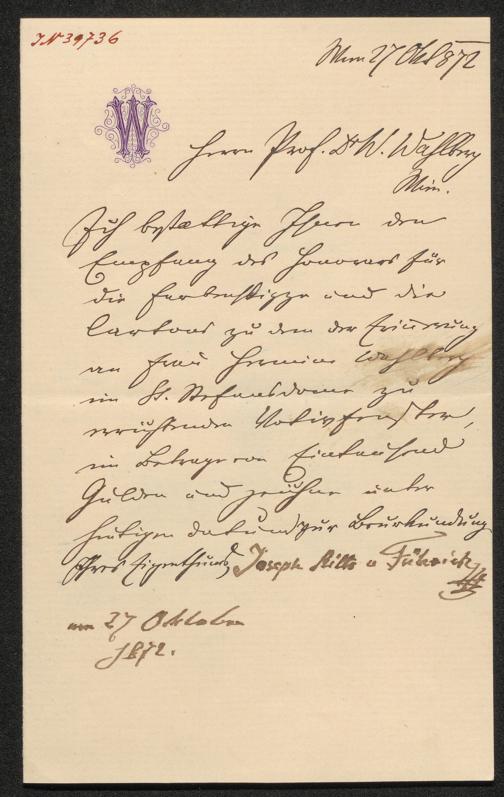 IN 39736
Wien 27 Okt 1872
W
Herrn Prof. Dr W. Wahlberg
Wien.
Ich bestættige Ihnen den
Empfang des Honorars für
die Farbenskizze und die
Cartons zu dem der Erinnerung
an Frau Hermine Wahlberg
im St. Stefansdome zu
errichtenden Votivfenster,
im Betrage von Eintausend
Gulden und zeichne unter
heutigem Datum zur Beurkundung
Ihres Eigenthums
Joseph Ritt v Führich
am 27 Oktober
1872.